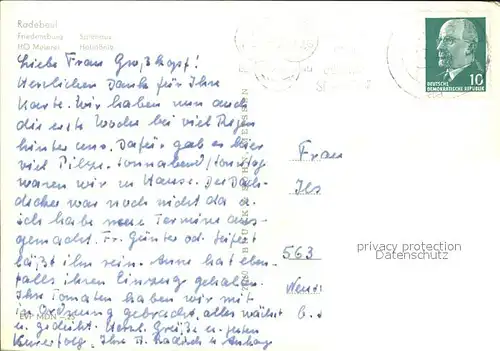 Radebeul
Friedensburg Spitzhaus
HO Meierei Hoflößnitz
Liebe Frau Großkopf!
Herzlichen Dank für Ihre
Karte. Wir haben nun auch
die erste Woche bei viel Regen
hinter uns. Dafür gab es hier
viel Pilze. Sonnabend/Sonntag
waren wir zu Hause. Der Dach-
decker war noch nicht da u.
ich habe neue Termine aus-
gemacht. Fr. Günter od. Seifert
läßt ihn rein. Anne hat eben-
falls ihren Einzug gehalten.
Ihre Tomaten haben wir mit
in Ordnung gebracht, alles wächst
u. gedeiht. Herzl. Grüße u. guten
Kurerfolg, Ihre
EVP MDN -,25
BRÜCK & SOHN, MEISSEN
10
DEUTSCHE
DEMOKRATISCHE REPUBLIK
Frau
Ils
563
privacy protection
Datenschutz